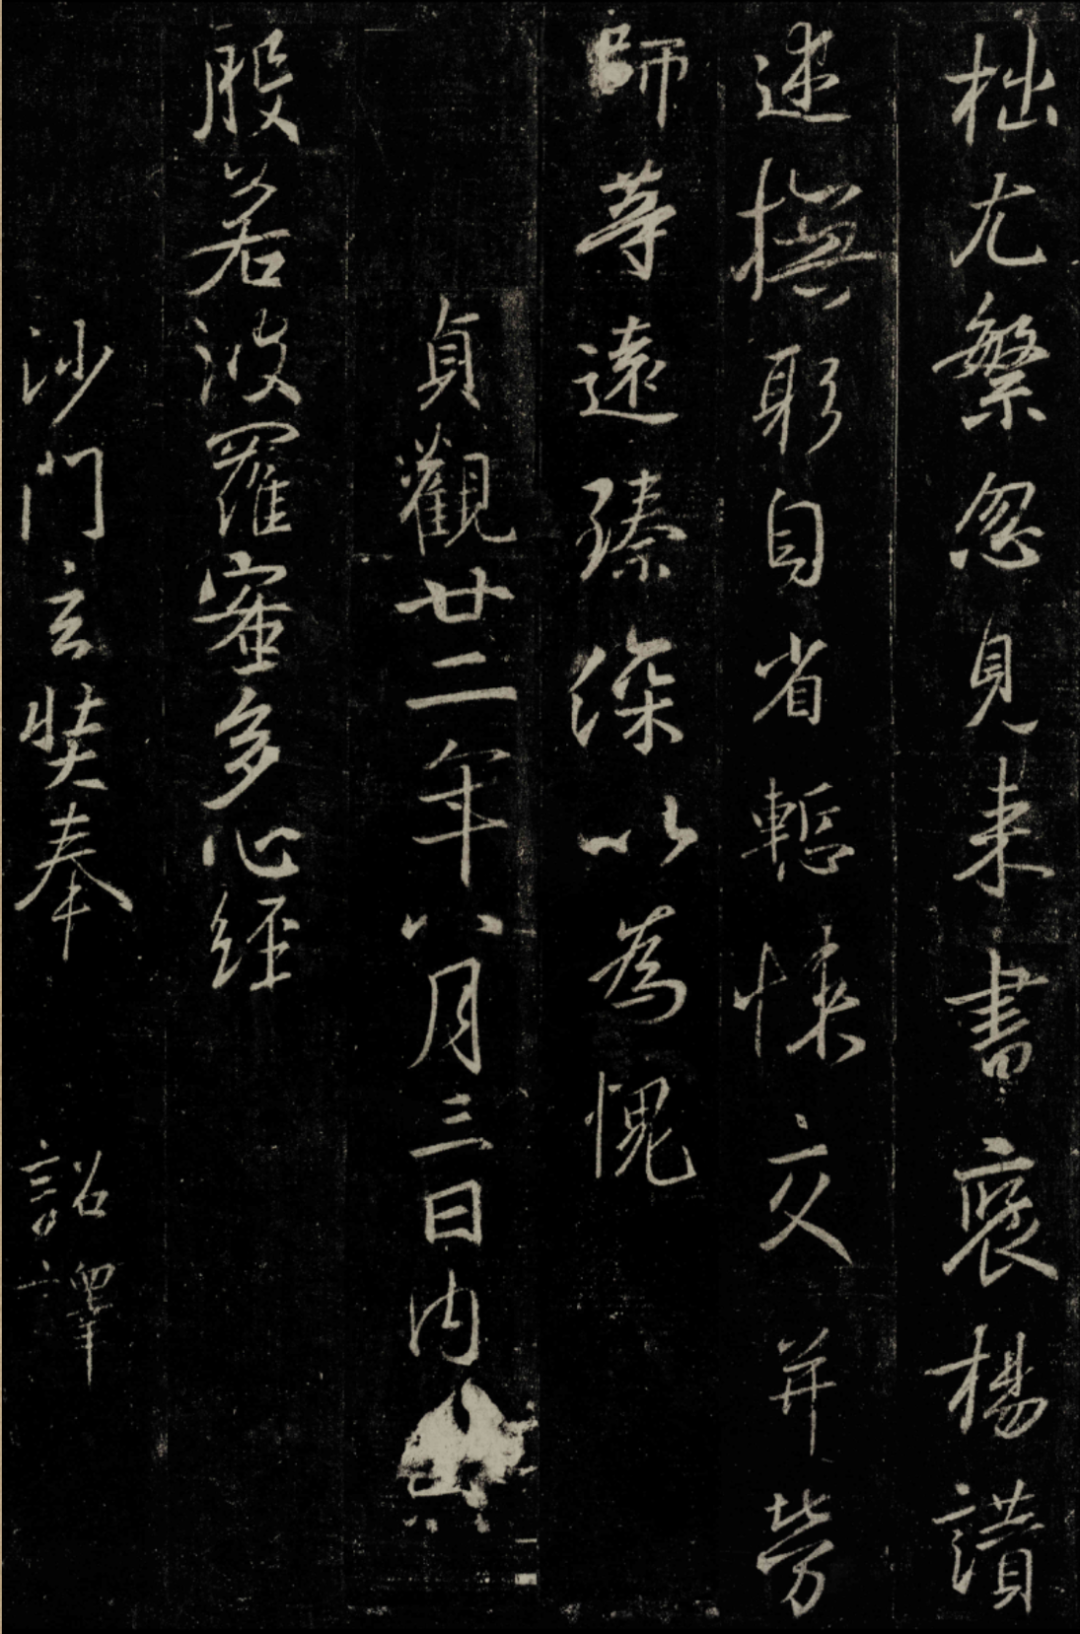 拙尤繁忽見来書褒揚讃
述撫躬自省慙悚交并勞
師等遠臻深以為愧
貞觀廿二年八月三日内
般若波羅蜜多心經
沙門玄奘奉 詔譯